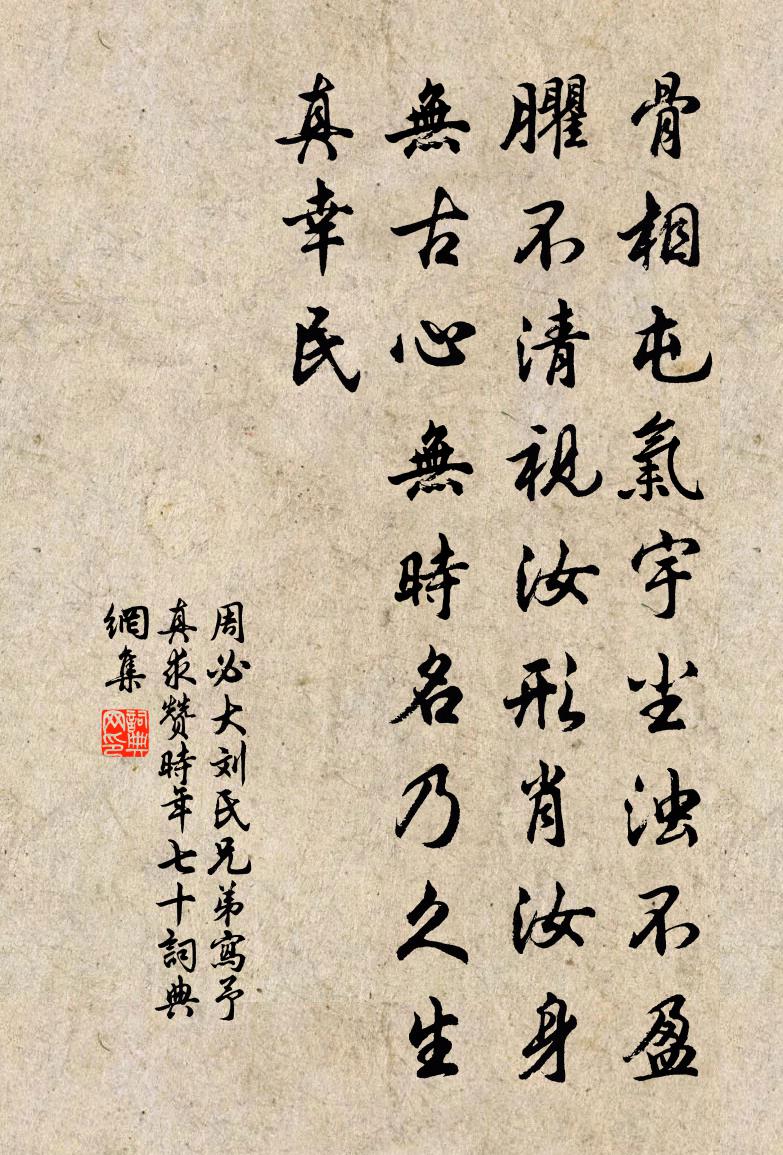 骨相屯氣宇尘浊不盈
臞不清視汝形肖汝身
無古心無時名乃久生
真幸民
周必大刘氏兄弟寫予
真求赞時年七十詞典
網集
詞典网印